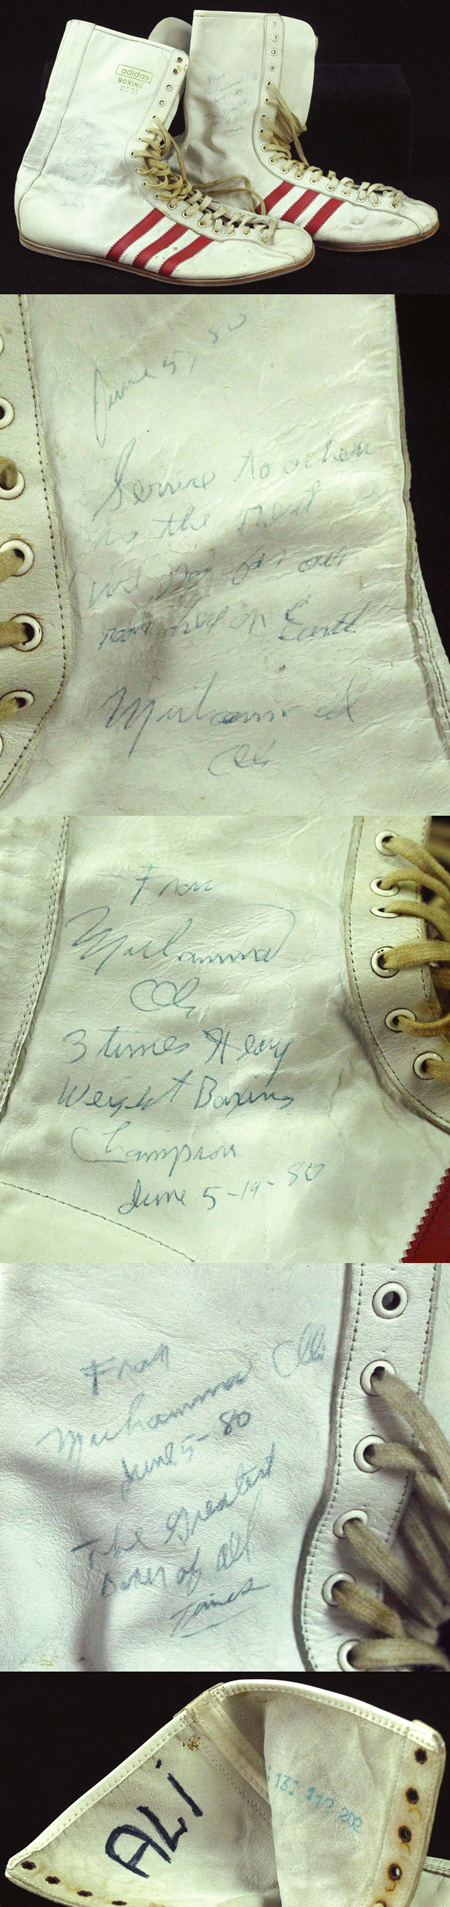 adidas
BOXING
June 5, 80
Service to others
is the rent
we pay for our
room here on Earth
Muhammad
Ali
From
Muhammad
Ali
3 times Heavy
Weight Boxing
Champion
June 5-19-80
From
Muhammad Ali
June 5-80
The Greatest
Boxer of All
Times
ALI